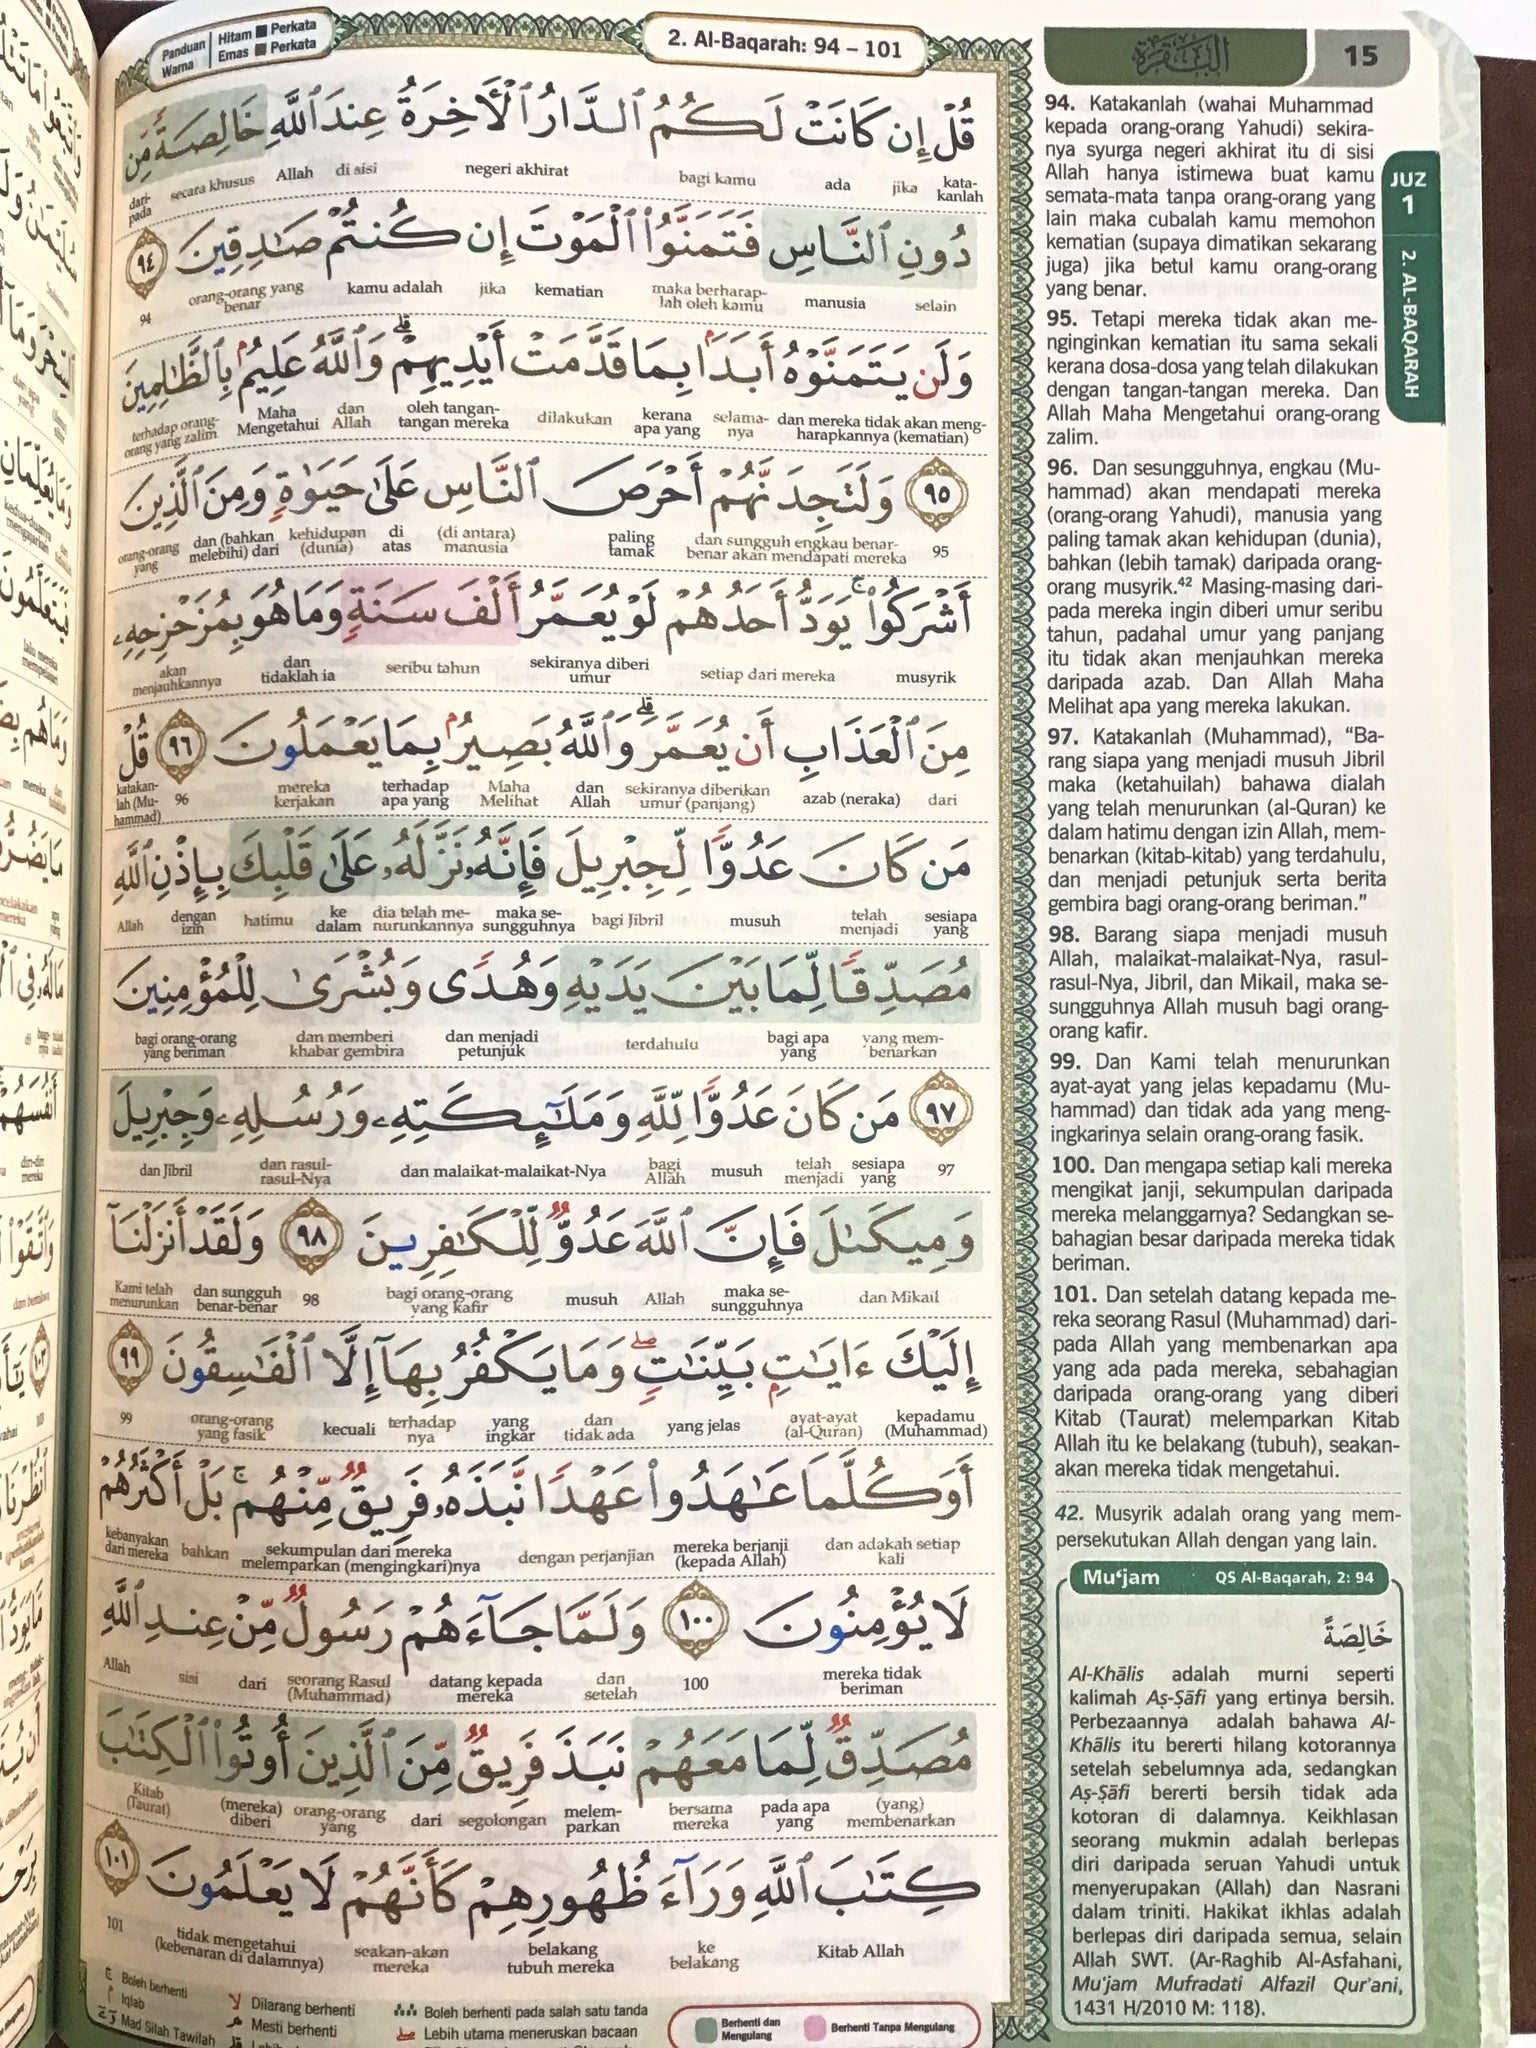 Panduan Warna | Hitam ■ Perkata
Emas ■ Perkata
2. Al-Baqarah: 94 – 101
قُلْ إِن كَانَتْ لَكُمُ ٱلدَّارُ ٱلْأَخِرَةُ عِندَ ٱللَّهِ خَالِصَةً مِّن
kata-kanlah jika ada bagi kamu negeri akhirat di sisi Allah secara khusus dari-pada
دُونِ ٱلنَّاسِ فَتَمَنَّوُا۟ ٱلْمَوْتَ إِن كُنتُمْ صَـٰدِقِينَ ٩٤
selain manusia maka berharap-lah oleh kamu kematian jika kamu adalah orang-orang yang benar 94
وَلَن يَتَمَنَّوْهُ أَبَدَۢا بِمَا قَدَّمَتْ أَيْدِيهِمْ ۗ وَٱللَّهُ عَلِيمُۢ بِٱلظَّـٰلِمِينَ
dan mereka tidak akan meng-harapkannya (kematian) selama-nya kerana apa yang dilakukan oleh tangan-tangan mereka dan Allah Maha Mengetahui terhadap orang-orang yang zalim
٩٥ وَلَتَجِدَنَّهُمْ أَحْرَصَ ٱلنَّاسِ عَلَىٰ حَيَوٰةٍ وَمِنَ ٱلَّذِينَ
95 dan sungguh engkau benar-benar akan mendapati mereka paling tamak (di antara) manusia di atas kehidupan (dunia) dan (bahkan melebihi) dari orang-orang yang
أَشْرَكُوا۟ ۚ يَوَدُّ أَحَدُهُمْ لَوْ يُعَمَّرُ أَلْفَ سَنَةٍ وَمَا هُوَ بِمُزَحْزِحِهِۦ
musyrik setiap dari mereka sekiranya diberi umur seribu tahun dan tidaklah ia akan menjauhkannya
مِنَ ٱلْعَذَابِ أَن يُعَمَّرَ ۗ وَٱللَّهُ بَصِيرُۢ بِمَا يَعْمَلُونَ ٩٦ قُلْ
dari azab (neraka) sekiranya diberikan umur (panjang) dan Allah Maha Melihat terhadap apa yang mereka kerjakan 96 katakan-lah (Mu-hammad)
مَن كَانَ عَدُوًّا لِّجِبْرِيلَ فَإِنَّهُۥ نَزَّلَهُۥ عَلَىٰ قَلْبِكَ بِإِذْنِ ٱللَّهِ
sesiapa yang telah menjadi musuh bagi Jibril maka se-sungguhnya dia telah me-nurunkannya ke dalam hatimu dengan izin Allah
مُصَدِّقًا لِّمَا بَيْنَ يَدَيْهِ وَهُدًى وَبُشْرَىٰ لِلْمُؤْمِنِينَ
yang mem-benarkan bagi apa yang terdahulu dan menjadi petunjuk dan memberi khabar gembira bagi orang-orang yang beriman
٩٧ مَن كَانَ عَدُوًّا لِّلَّهِ وَمَلَـٰٓئِكَتِهِۦ وَرُسُلِهِۦ وَجِبْرِيلَ
97 sesiapa yang telah menjadi musuh bagi Allah dan malaikat-malaikat-Nya dan rasul-rasul-Nya dan Jibril
وَمِيكَىٰلَ فَإِنَّ ٱللَّهَ عَدُوٌّ لِّلْكَـٰفِرِينَ ٩٨ وَلَقَدْ أَنزَلْنَآ
dan Mikail maka se-sungguhnya Allah musuh bagi orang-orang yang kafir 98 dan sungguh benar-benar Kami telah menurunkan
إِلَيْكَ ءَايَـٰتِۭ بَيِّنَـٰتٍ ۖ وَمَا يَكْفُرُ بِهَآ إِلَّا ٱلْفَـٰسِقُونَ ٩٩
kepadamu (Muhammad) ayat-ayat (al-Quran) yang jelas dan tidak ada yang ingkar terhadap nya kecuali orang-orang yang fasik 99
أَوَكُلَّمَا عَـٰهَدُوا۟ عَهْدًا نَّبَذَهُۥ فَرِيقٌ مِّنْهُم ۚ بَلْ أَكْثَرُهُمْ
dan adakah setiap kali mereka berjanji (kepada Allah) dengan perjanjian sekumpulan dari mereka melemparkan (mengingkari)nya bahkan kebanyakan dari mereka
لَا يُؤْمِنُونَ ١٠٠ وَلَمَّا جَآءَهُمْ رَسُولٌ مِّنْ عِندِ ٱللَّهِ
mereka tidak beriman 100 dan setelah datang kepada mereka seorang Rasul (Muhammad) dari sisi Allah
مُصَدِّقٌ لِّمَا مَعَهُمْ نَبَذَ فَرِيقٌ مِّنَ ٱلَّذِينَ أُوتُوا۟ ٱلْكِتَـٰبَ
(yang) membenarkan pada apa yang bersama mereka melem-parkan segolongan dari orang-orang yang (mereka) diberi Kitab (Taurat)
كِتَـٰبَ ٱللَّهِ وَرَآءَ ظُهُورِهِمْ كَأَنَّهُمْ لَا يَعْلَمُونَ ١٠١
Kitab Allah ke belakang belakang tubuh mereka seakan-akan mereka tidak mengetahui (kebenaran di dalamnya) 101
Boleh berhenti
Iqlab
Mad Silah Tawilah
Dilarang berhenti
Mesti berhenti
Boleh berhenti pada salah satu tanda
Lebih utama meneruskan bacaan
Berhenti dan Mengulang
Berhenti Tanpa Mengulang
البقرة
15
JUZ
1
2. AL-BAQARAH
94. Katakanlah (wahai Muhammad
kepada orang-orang Yahudi) sekira-
nya syurga negeri akhirat itu di sisi
Allah hanya istimewa buat kamu
semata-mata tanpa orang-orang yang
lain maka cubalah kamu memohon
kematian (supaya dimatikan sekarang
juga) jika betul kamu orang-orang
yang benar.
95. Tetapi mereka tidak akan me-
nginginkan kematian itu sama sekali
kerana dosa-dosa yang telah dilakukan
dengan tangan-tangan mereka. Dan
Allah Maha Mengetahui orang-orang
zalim.
96. Dan sesungguhnya, engkau (Mu-
hammad) akan mendapati mereka
(orang-orang Yahudi), manusia yang
paling tamak akan kehidupan (dunia),
bahkan (lebih tamak) daripada orang-
orang musyrik.42 Masing-masing dari-
pada mereka ingin diberi umur seribu
tahun, padahal umur yang panjang
itu tidak akan menjauhkan mereka
daripada azab. Dan Allah Maha
Melihat apa yang mereka lakukan.
97. Katakanlah (Muhammad), “Ba-
rang siapa yang menjadi musuh Jibril
maka (ketahuilah) bahawa dialah
yang telah menurunkan (al-Quran) ke
dalam hatimu dengan izin Allah, mem-
benarkan (kitab-kitab) yang terdahulu,
dan menjadi petunjuk serta berita
gembira bagi orang-orang beriman.”
98. Barang siapa menjadi musuh
Allah, malaikat-malaikat-Nya, rasul-
rasul-Nya, Jibril, dan Mikail, maka se-
sungguhnya Allah musuh bagi orang-
orang kafir.
99. Dan Kami telah menurunkan
ayat-ayat yang jelas kepadamu (Mu-
hammad) dan tidak ada yang meng-
ingkarinya selain orang-orang fasik.
100. Dan mengapa setiap kali mereka
mengikat janji, sekumpulan daripada
mereka melanggarnya? Sedangkan se-
bahagian besar daripada mereka tidak
beriman.
101. Dan setelah datang kepada me-
reka seorang Rasul (Muhammad) dari-
pada Allah yang membenarkan apa
yang ada pada mereka, sebahagian
daripada orang-orang yang diberi
Kitab (Taurat) melemparkan Kitab
Allah itu ke belakang (tubuh), seakan-
akan mereka tidak mengetahui.
42. Musyrik adalah orang yang mem-
persekutukan Allah dengan yang lain.
Mu‘jam QS Al-Baqarah, 2: 94
خَالِصَةً
Al-Khālis adalah murni seperti
kalimah Aṣ-Ṣāfi yang ertinya bersih.
Perbezaannya adalah bahawa Al-
Khālis itu bererti hilang kotorannya
setelah sebelumnya ada, sedangkan
Aṣ-Ṣāfi bererti bersih tidak ada
kotoran di dalamnya. Keikhlasan
seorang mukmin adalah berlepas
diri daripada seruan Yahudi untuk
menyerupakan (Allah) dan Nasrani
dalam triniti. Hakikat ikhlas adalah
berlepas diri daripada semua, selain
Allah SWT. (Ar-Raghib Al-Asfahani,
Mu'jam Mufradati Alfazil Qur'ani,
1431 H/2010 M: 118).